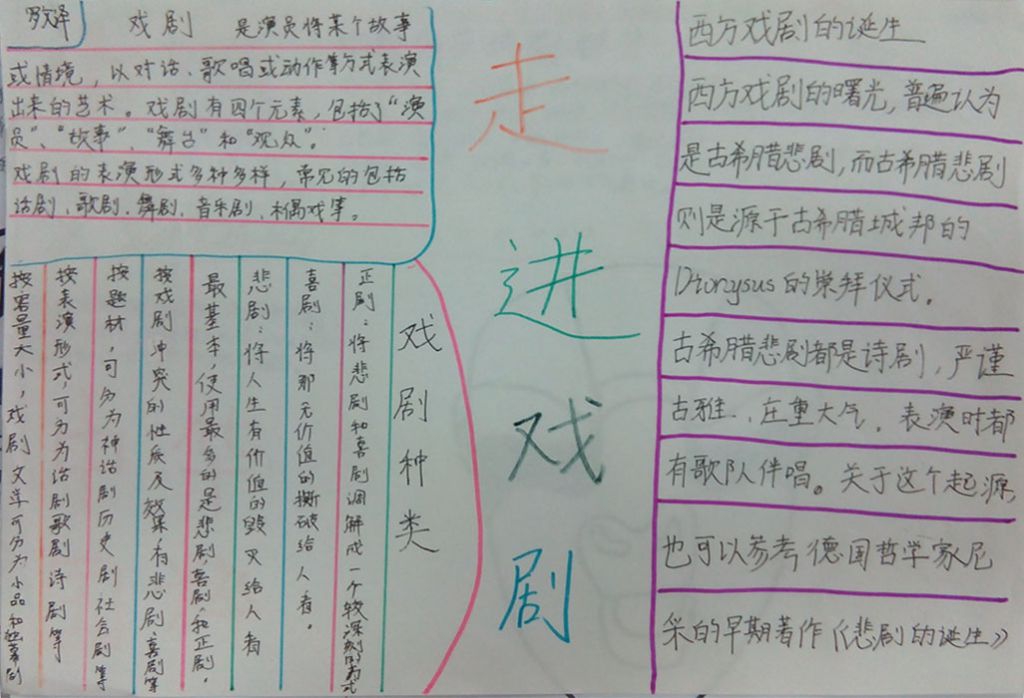 戏剧 是演员将某个故事
或情境，以对话、歌唱或动作等方式表演
出来的艺术。戏剧有四个元素，包括了“演
员”、“故事”、“舞台”和“观众”。
戏剧的表演形式多种多样，常见的包括
话剧、歌剧、舞剧、音乐剧、木偶戏等。
走进戏剧
西方戏剧的诞生
西方戏剧的曙光，普遍认为
是古希腊悲剧，而古希腊悲剧
则是源于古希腊城邦的
Dionysus的崇拜仪式。
古希腊悲剧都是诗剧，严谨
古雅、庄重大气。表演时都
有歌队伴唱。关于这个起源，
也可以参考德国哲学家尼
采的早期著作《悲剧的诞生》
戏剧种类
正剧：将悲剧和喜剧调解成一个较深刻的方式
喜剧：将那无价值的撕破给人看。
悲剧：将人生有价值的毁灭给人看
最基本，使用最多的是悲剧，喜剧，和正剧，
按戏剧冲突的性质及效果，有悲剧，喜剧等
按题材，可分为神话剧历史剧社会剧等
按表演形式，可分为话剧歌剧诗剧等
按容量大小，戏剧文学可分为小品和独幕剧